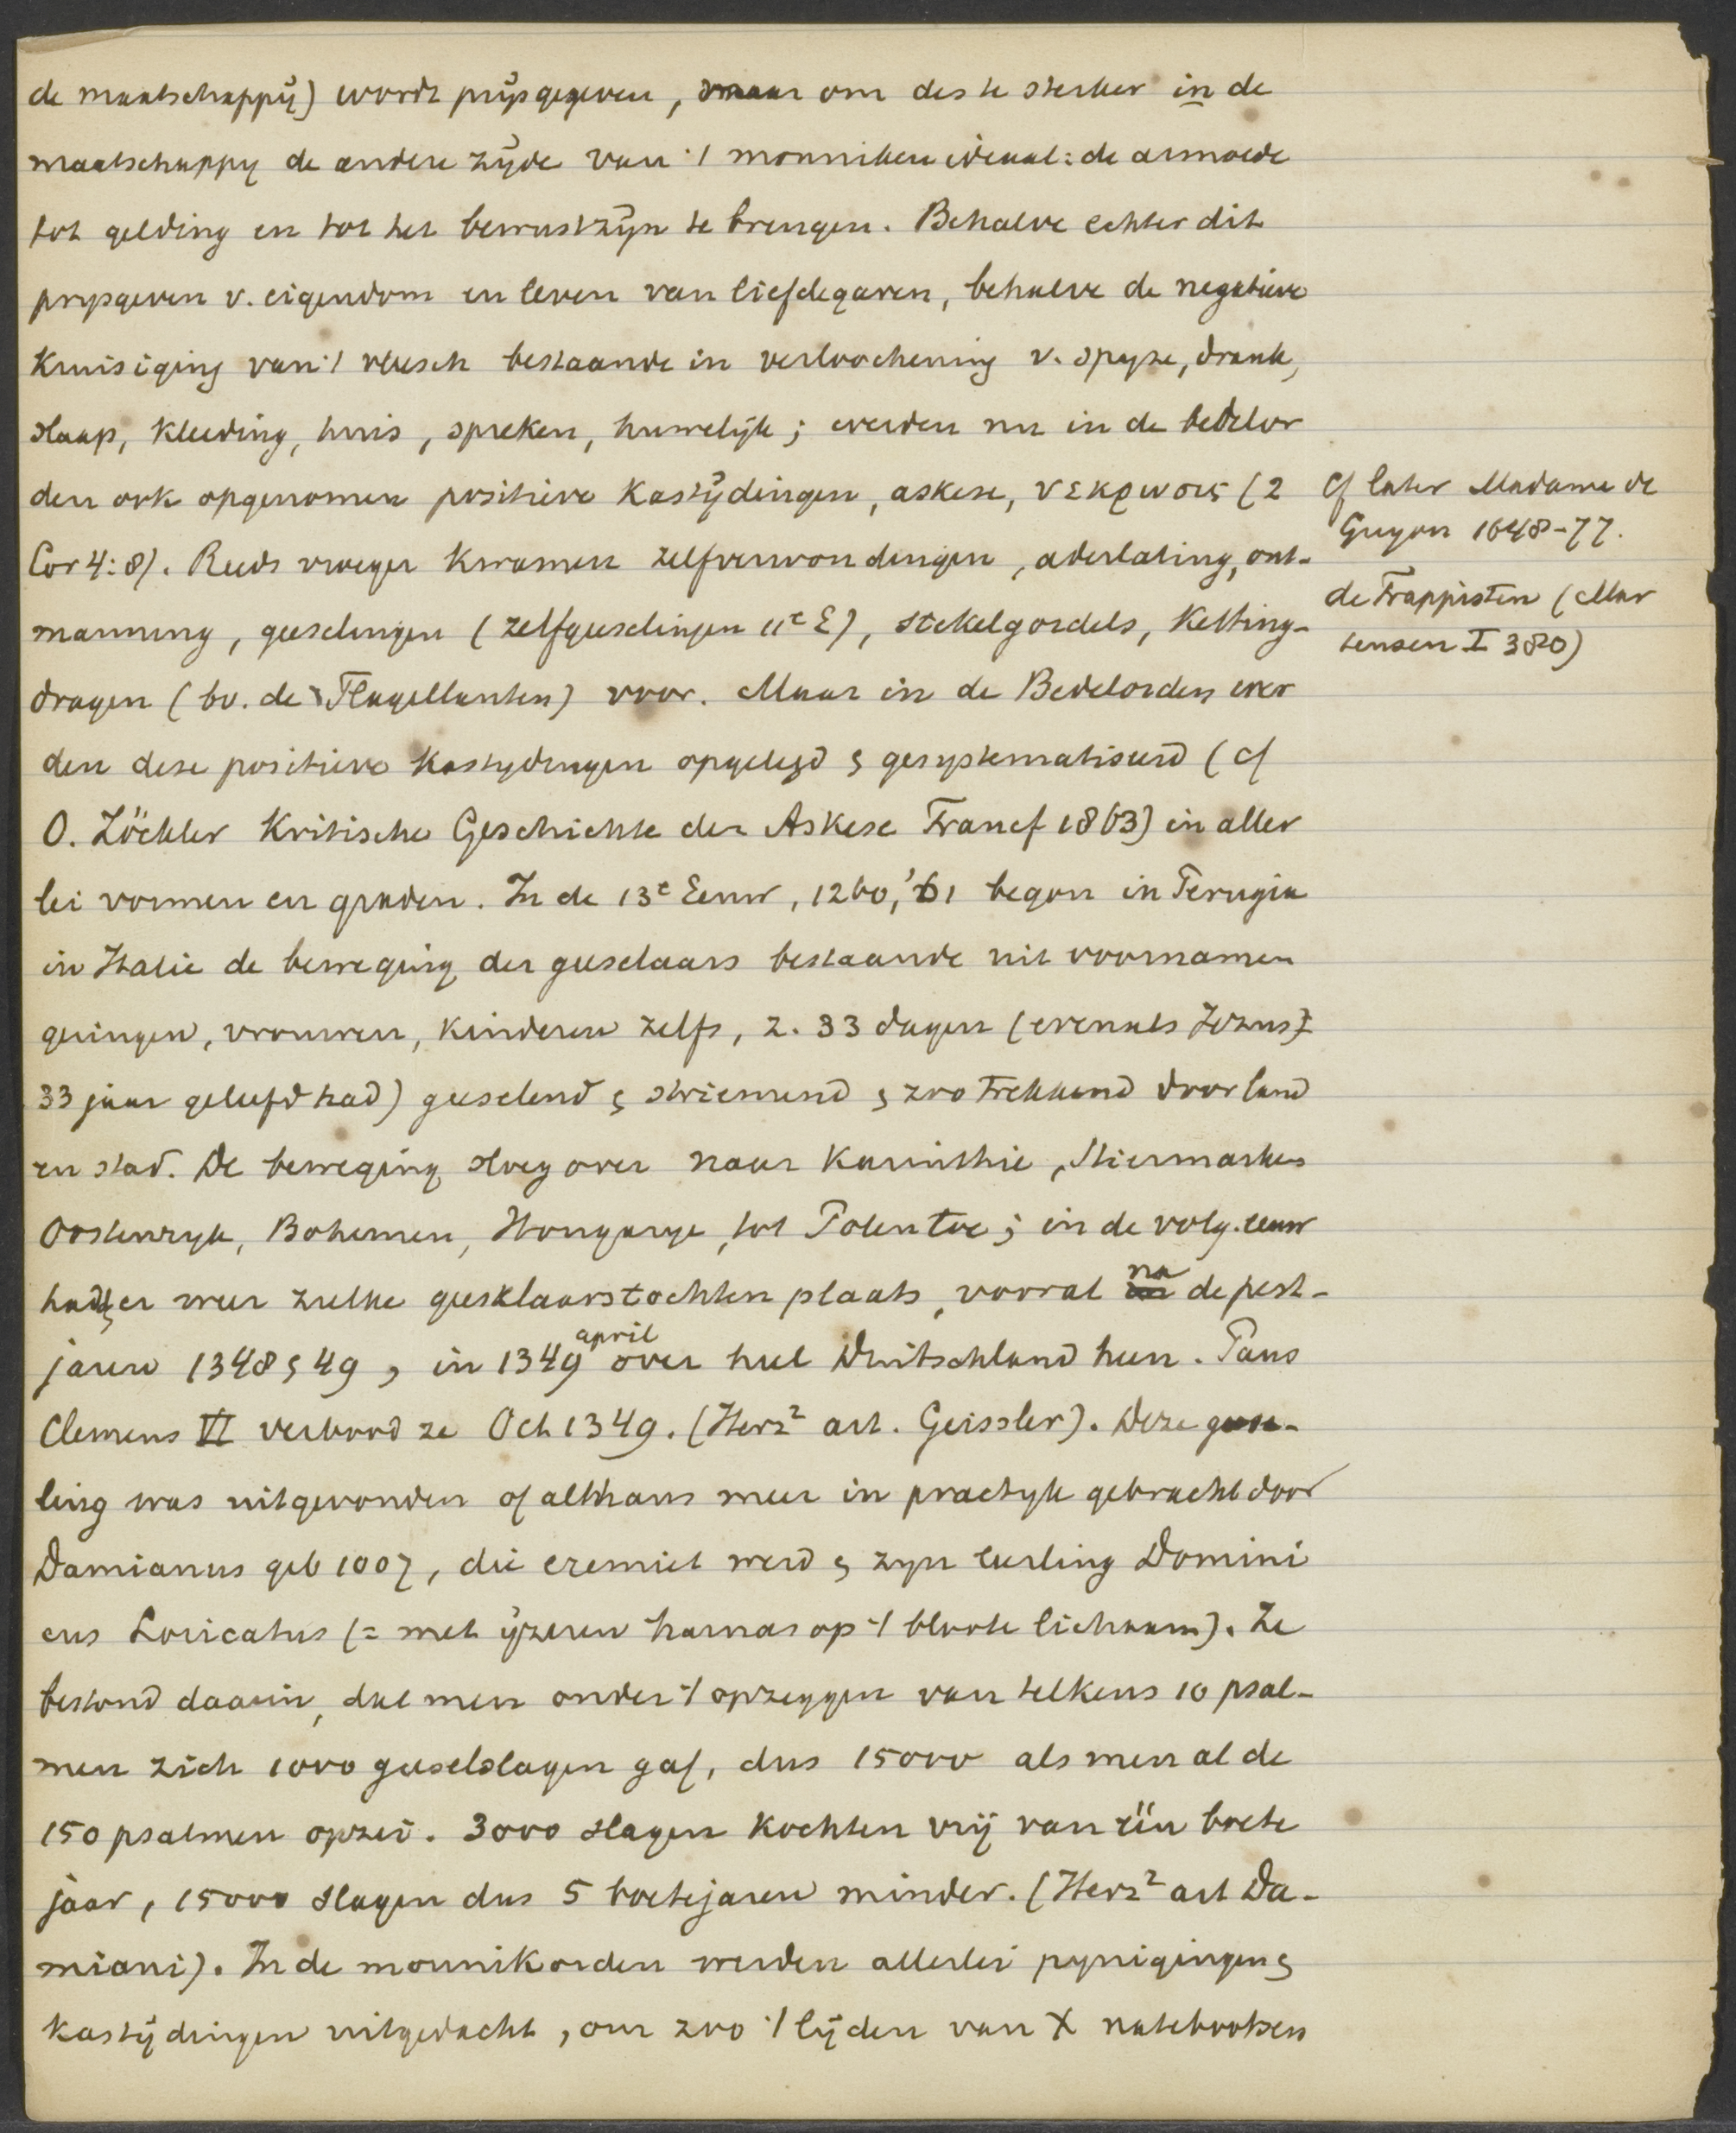 de maatschappij) wordt prijsgegeven, maar om des te sterker in de
maatschappy de andere zijde van 't monniken ideaal: de armoede
tot gelding en tot het bewustzijn te brengen. Behalve echter dit
prysgeven v. eigendom en leven van liefdegaven, behalve de negatieve
Kruisiging van 't vleesch bestaande in verloochening v. spyze, drank,
slaap, kleeding, huis, spreken, huwelijk; werden nu in de bedelor
den ook opgenomen positieve Kastijdingen, askese, νεκρωσις (2
Cor 4:8). Reeds vroeger kwamen zelfverwondingen, aderlating, ont-
manning, geeselingen (zelfgeeselingen 11e E), stekelgordels, Ketting-
dragen (bv. de Flagellanten) voor. Maar in de Bedelorden wer
den deze positieve Kastydingen opgelegd & gesystematiseerd (cf
O. Zöckler Kritische Geschichte der Askese Francf 1863) in aller
lei vormen en graden. In de 13e Eeuw, 1260,'61 begon in Perugia
in Italie de beweging der geeselaars bestaande uit voornamen
geringen, vrouwen, kinderen zelfs, 2. 33 dagen (evenals Jezus
33 jaar geleefd had) geeselend & striemend & zoo trekkend door land
en stad. De beweging sloeg over naar Karinthie, Stiermarken
Oostenryk, Bohemen, Hongarye, tot Polen toe; in de volg. eeuw
hadden er weer zulke geeselaarstochten plaats, vooral na de pest-
jaren 1348 & 49, in 1349 april over heel Duitschland heen. Paus
Clemens VI verbood ze Oct 1349. (Herz² art. Geissler). Deze geese-
ling was uitgevonden of althans meer in practyk gebracht door
Damianus geb 1007, die eremiet werd & zyn leerling Domini
cus Loricatus (= met ijzeren harnas op 't bloote lichaam). Ze
bestond daarin, dat men onder 't opzeggen van telkens 10 psal-
men zich 1000 geeselslagen gaf, dus 15000 als men al de
150 psalmen opzei. 3000 slagen kochten vrij van één boete
jaar, 15000 slagen dus 5 boetejaren minder. (Herz² art Da-
miani). In de monnikorden werden allerlei pynigingen &
Kastijdingen uitgedacht, om zoo 't lijden van X natebootsen
Cf later Madame de
Guyon 1648-77.
de Trappisten (Mar
tensen I 380)